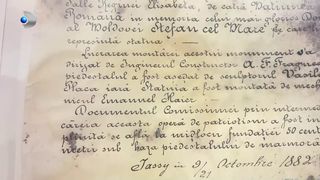 Salle Reginei Elisabeta, de catră Natiunea
Română in memoria celui mai glorios Domn
al Moldovei Stefan cel Mare de care
represintă statua.
Lucrarea montărei acestui monument a
dirigat de Inginerul Constructor A. F. Fragnea
piedestalul a fost asedat de sculptorul Vasile
Placa iară Statuia a fost montată de mecha
nicul Emanuel Haier.
Documentul Comissiunei prin interme
căreia aceasta operă de patriotism a fost in
plinită se află la midlocu fundației 50 cent
metri sub baza piedestalului de marmoră
Jassy in 9/21 Octombre 1882